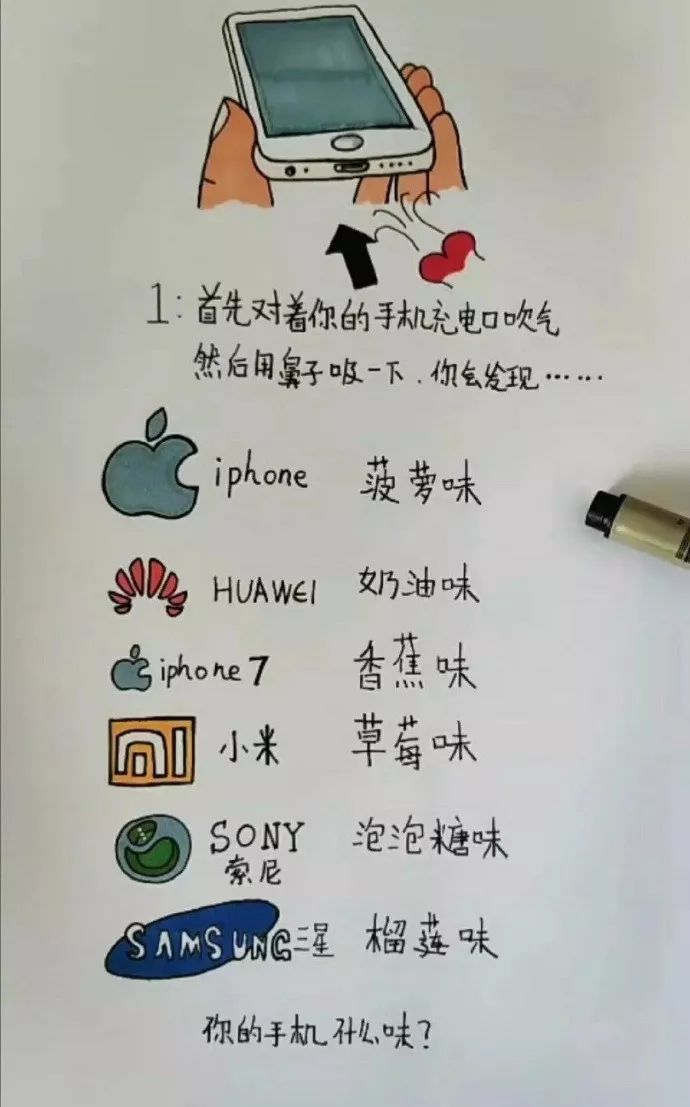 1:首先对着你的手机充电口吹气
然后用鼻子吸一下.你会发现……
iphone 菠萝味
HUAWEI 奶油味
iphone 7 香蕉味
小米 草莓味
SONY 泡泡糖味
索尼
SAMSUNG三星 榴莲味
你的手机什么味?